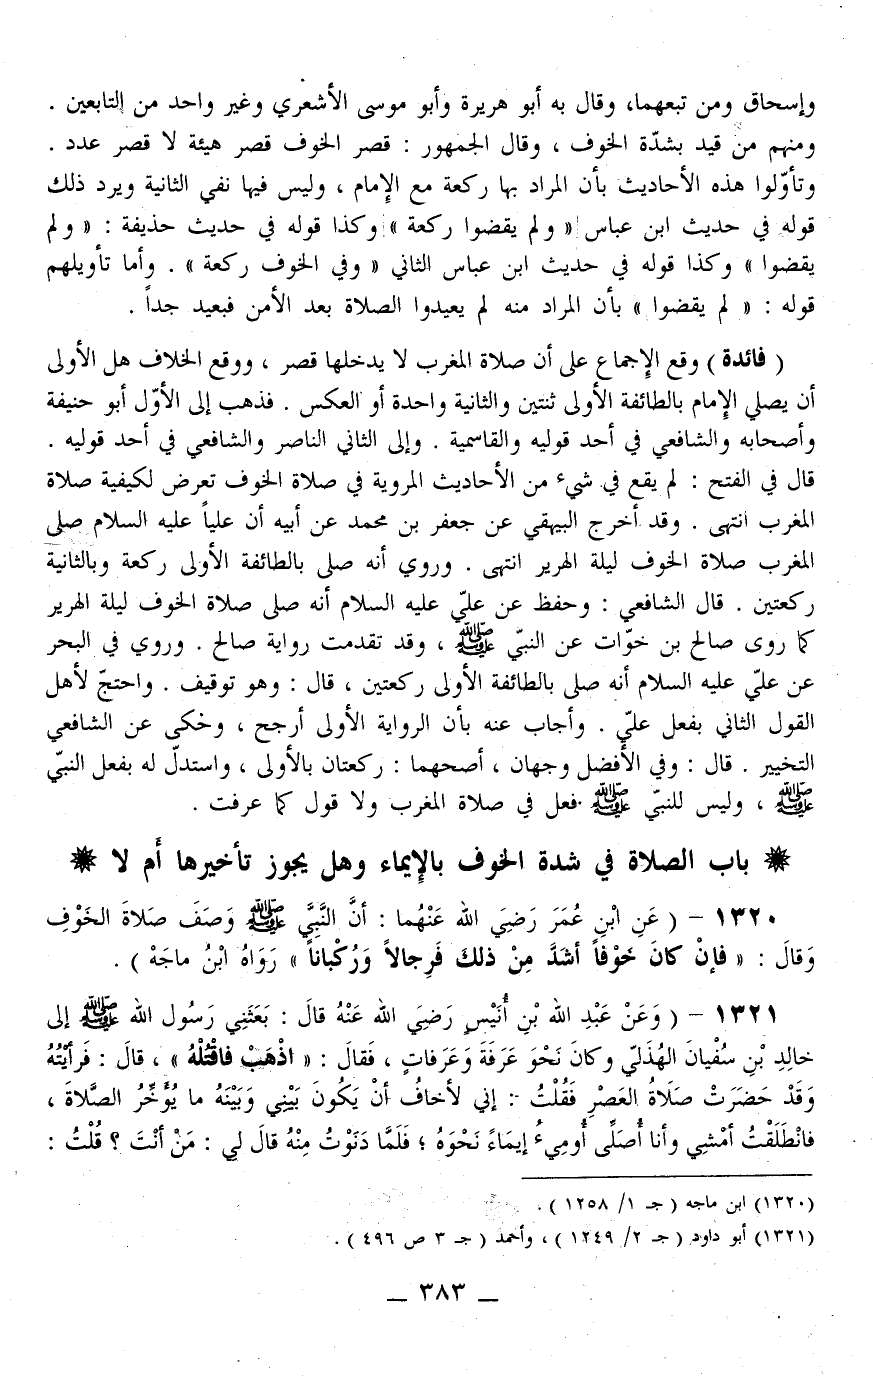 وإسحاق ومن تبعهما، وقال به أبو هريرة وأبو موسى الأشعري وغير واحد من التابعين .
ومنهم من قيد بشدّة الخوف ، وقال الجمهور : قصر الخوف قصر هيئة لا قصر عدد .
وتأوّلوا هذه الأحاديث بأن المراد بها ركعة مع الإمام ، وليس فيها نفي الثانية ويرد ذلك
قوله في حديث ابن عباس « ولم يقضوا ركعة » وكذا قوله في حديث حذيفة : « ولم
يقضوا » وكذا قوله في حديث ابن عباس الثاني « وفي الخوف ركعة » . وأما تأويلهم
قوله : « لم يقضوا » بأن المراد منه لم يعيدوا الصلاة بعد الأمن فبعيد جداً .
( فائدة ) وقع الإجماع على أن صلاة المغرب لا يدخلها قصر ، ووقع الخلاف هل الأولى
أن يصلي الإمام بالطائفة الأولى ثنتين والثانية واحدة أو العكس . فذهب إلى الأوّل أبو حنيفة
وأصحابه والشافعي في أحد قوليه والقاسمية . وإلى الثاني الناصر والشافعي في أحد قوليه .
قال في الفتح : لم يقع في شيء من الأحاديث المروية في صلاة الخوف تعرض لكيفية صلاة
المغرب انتهى . وقد أخرج البيهقي عن جعفر بن محمد عن أبيه أن علياً عليه السلام صلى
المغرب صلاة الخوف ليلة الهرير انتهى . وروي أنه صلى بالطائفة الأولى ركعة وبالثانية
ركعتين . قال الشافعي : وحفظ عن عليّ عليه السلام أنه صلى صلاة الخوف ليلة الهرير
كما روى صالح بن خوّات عن النبيّ ﷺ ، وقد تقدمت رواية صالح . وروي في البحر
عن عليّ عليه السلام أنه صلى بالطائفة الأولى ركعتين ، قال : وهو توقيف . واحتجّ لأهل
القول الثاني بفعل عليّ . وأجاب عنه بأن الرواية الأولى أرجح ، وحكى عن الشافعي
التخيير . قال : وفي الأفضل وجهان ، أصحهما : ركعتان بالأولى ، واستدلّ له بفعل النبيّ
ﷺ ، وليس للنبيّ ﷺ فعل في صلاة المغرب ولا قول كما عرفت .
❋ باب الصلاة في شدة الخوف بالإيماء وهل يجوز تأخيرها أم لا ❋
١٣٢٠ – ( عَنِ ابْنِ عُمَرَ رَضِيَ الله عَنْهُما : أنَّ النَّبِيَّ ﷺ وَصَفَ صَلاةَ الخَوْفِ
وَقالَ : « فإنْ كانَ خَوْفاً أشَدَّ مِنْ ذلكَ فَرِجالاً وَرُكْباناً » رَوَاهُ ابْنُ ماجَهْ ) .
١٣٢١ – ( وَعَنْ عَبْدِ الله بْنِ أُنَيْسٍ رَضِيَ الله عَنْهُ قالَ : بَعَثَنِي رَسُول الله ﷺ إلى
خالِدِ بْنِ سُفْيانَ الهُذَليّ وكانَ نَحْوَ عَرَفَةَ وَعَرفاتٍ ، فَقالَ : « اذْهَبْ فاقْتُلْهُ » ، قالَ : فَرأيْتُهُ
وَقَدْ حَضَرَتْ صَلاةُ العَصْرِ فَقُلْتُ : إني لأخافُ أنْ يَكُونَ بَيْنِي وَبَيْنَهُ ما يُؤَخِّرُ الصَّلاةَ ،
فانْطَلَقْتُ أمْشِي وأنا أُصَلِّي أُومِيءُ إيمَاءً نَحْوَهُ ؛ فَلَمَّا دَنَوْتُ مِنْهُ قالَ لي : مَنْ أنْتَ ؟ قُلْتُ :
(١٣٢٠) ابن ماجه ( جـ ١/ ١٢٥٨ ) .
(١٣٢١) أبو داود ( جـ ٢/ ١٢٤٩ ) ، وأحمد ( جـ ٣ ص ٤٩٦ ) .
ــ ٣٨٣ ــ